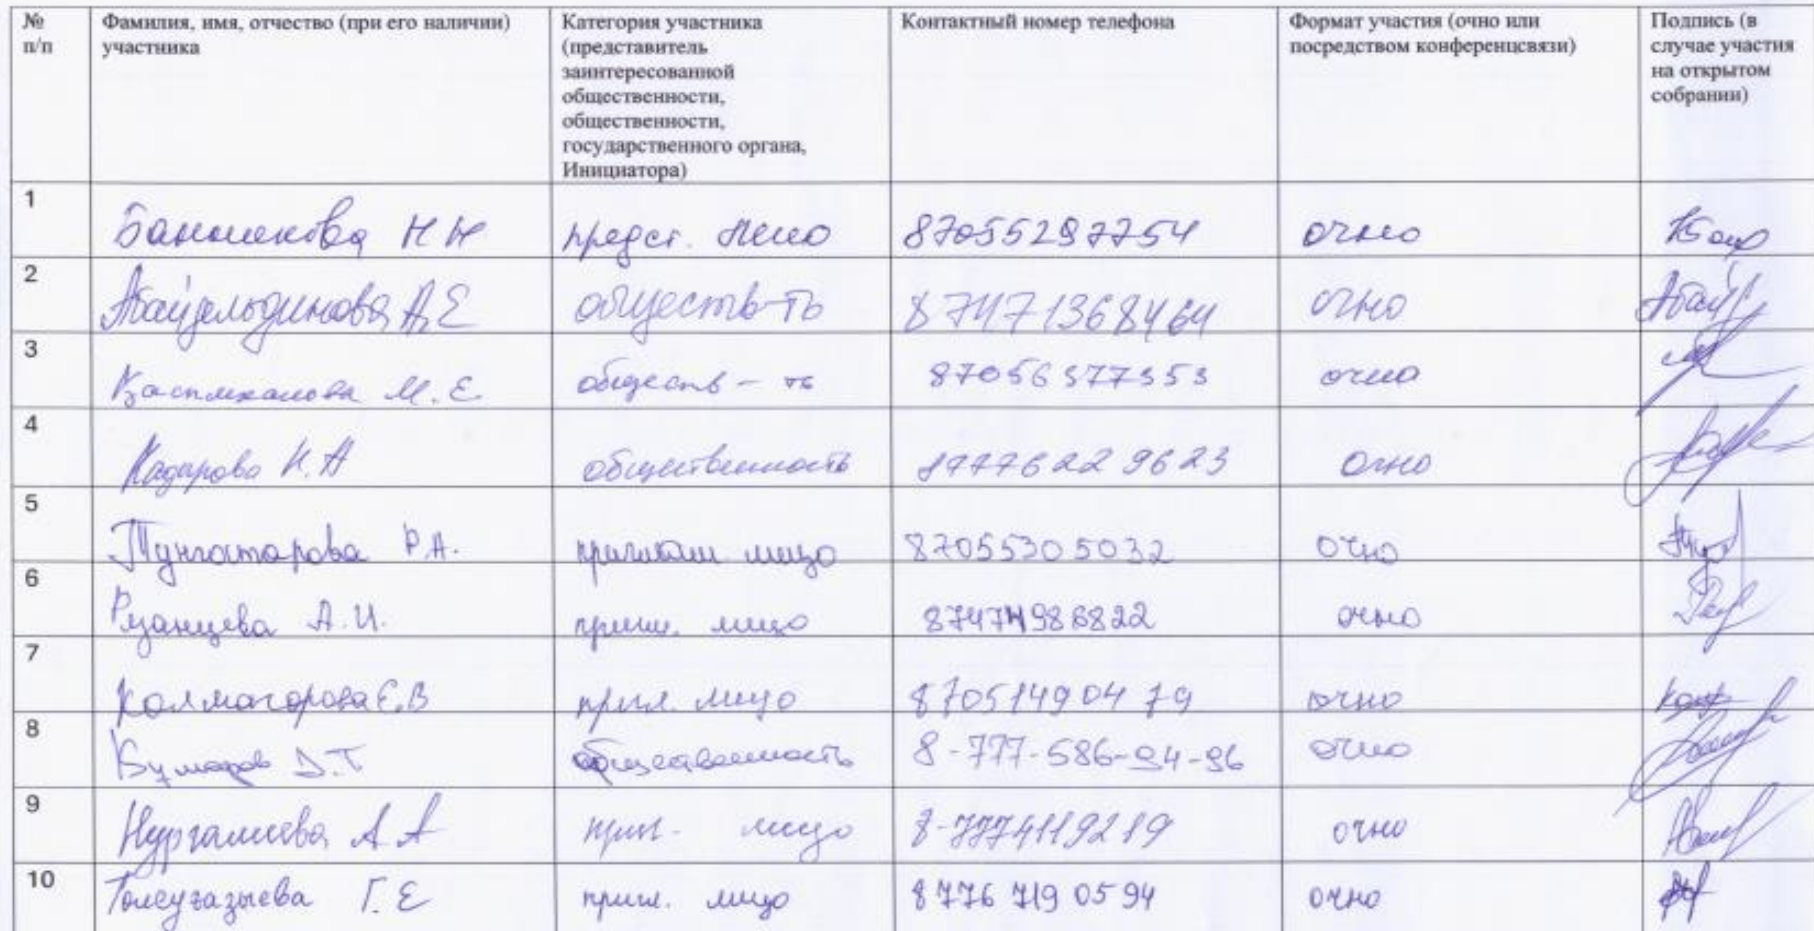 № п/п
Фамилия, имя, отчество (при его наличии) участника
Категория участника (представитель заинтересованной общественности, общественности, государственного органа, Инициатора)
Контактный номер телефона
Формат участия (очно или посредством конференцсвязи)
Подпись (в случае участия на открытом собрании)
1 Н Н предст. 87055297754 очно
2 А.Е обществ-ть 87471368464 очно
3 М. Е. обществ - ть 87056377353 очно
4 Кадырова К. А общественность 87776229623 очно
5 Тунгатарова Р.А. приглаш лицо 87055305032 очно
6 Рязанцева А.И. пригл. лицо очно
7 Колмагорова Е.В пригл. лицо 8705149 04 79 очно
8 Д.Т общественность 8-777-586-94-96 очно
9 Нургалиева А А приг- лицо 8-7774119219 очно
10 Толеугазыева Г.Е пригл. лицо 8776 719 05 94 очно